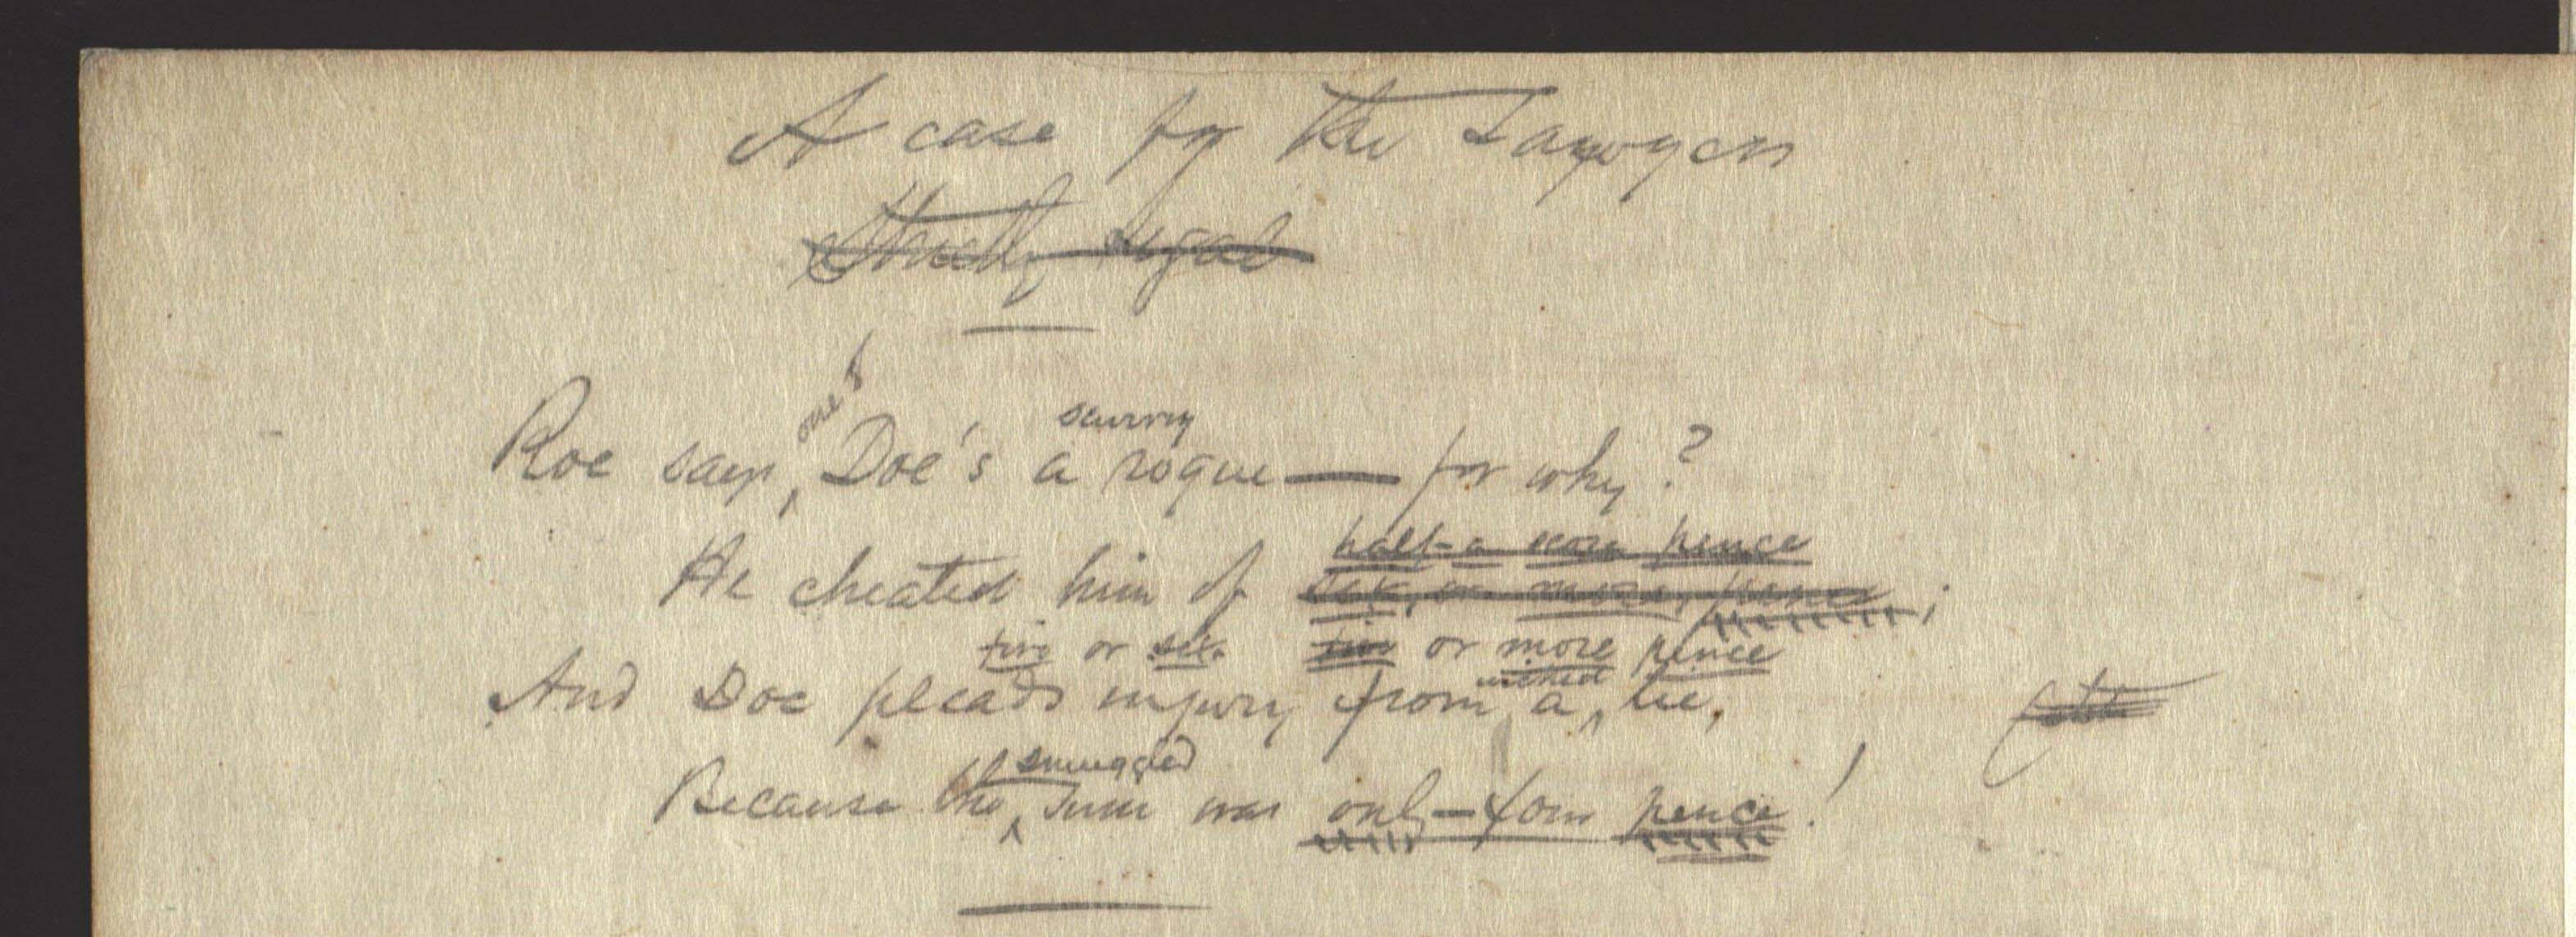 A case for the Lawyers
Strictly legal
one
scurvy
Roe says, Doe's a rogue — for why?
half-a score pence
He cheated him of six, or more, pence;
five or six five or more pence
wicked
And Doe pleads injury from a lie,
smuggled
Because the sum was only – four pence!